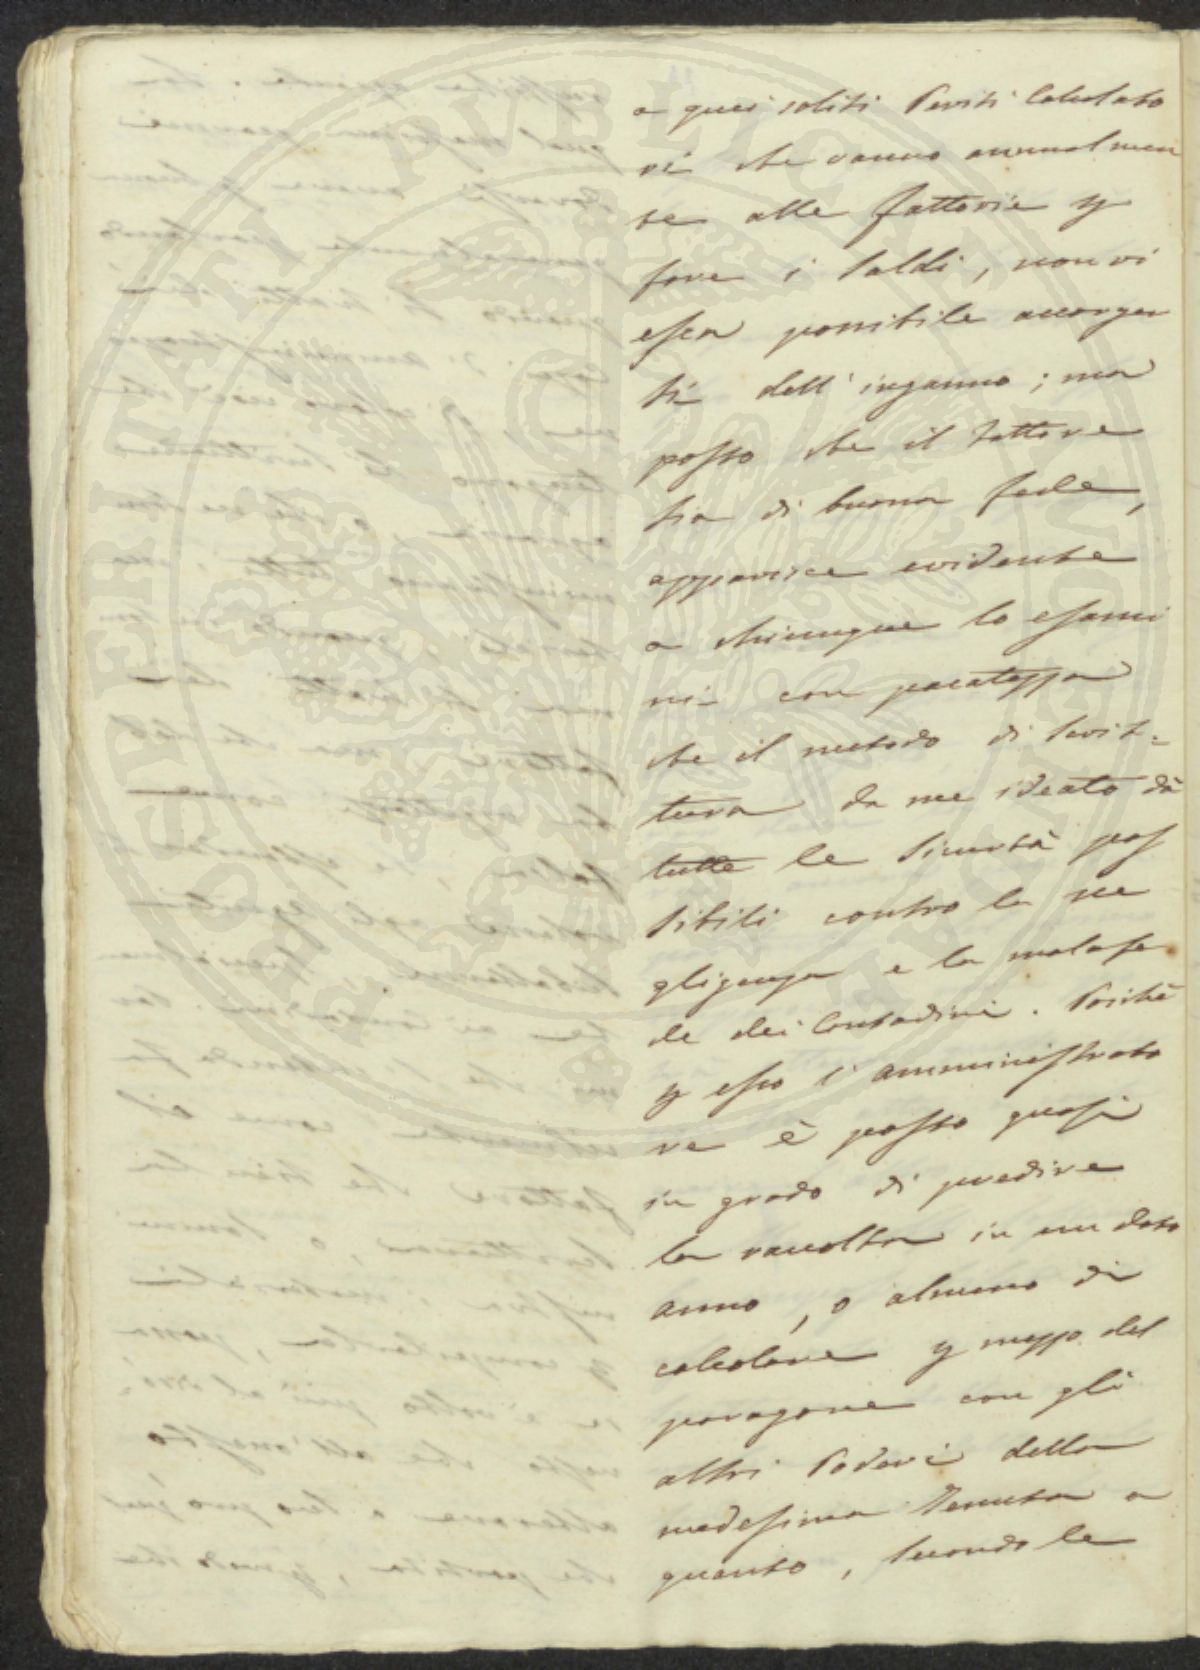 a quei soliti Periti Calcolato
ri che vanno annualmen
te alle fattorie p
fare i saldi, non vi
essa possibile accorger
si dell'inganno; ma
posto che il fattore
sia di buona fede,
apparisce evidente
a chiunque lo esami
ni con pacatezza
che il metodo di scrit=
tura da me ideato dà
tutte le sicurtà pos
sibili contro la ne
gligenza e la malafe
de dei Contadini. Poichè
p esso l'amministrato
re è posto quasi
in grado di predire
la raccolta in un dato
anno, o almeno di
calcolare p mezzo del
paragone con gli
altri Poderi della
medesima Tenuta a
quanto, secondo le
PROSPERITATI PVBLICAE AVGENDAE